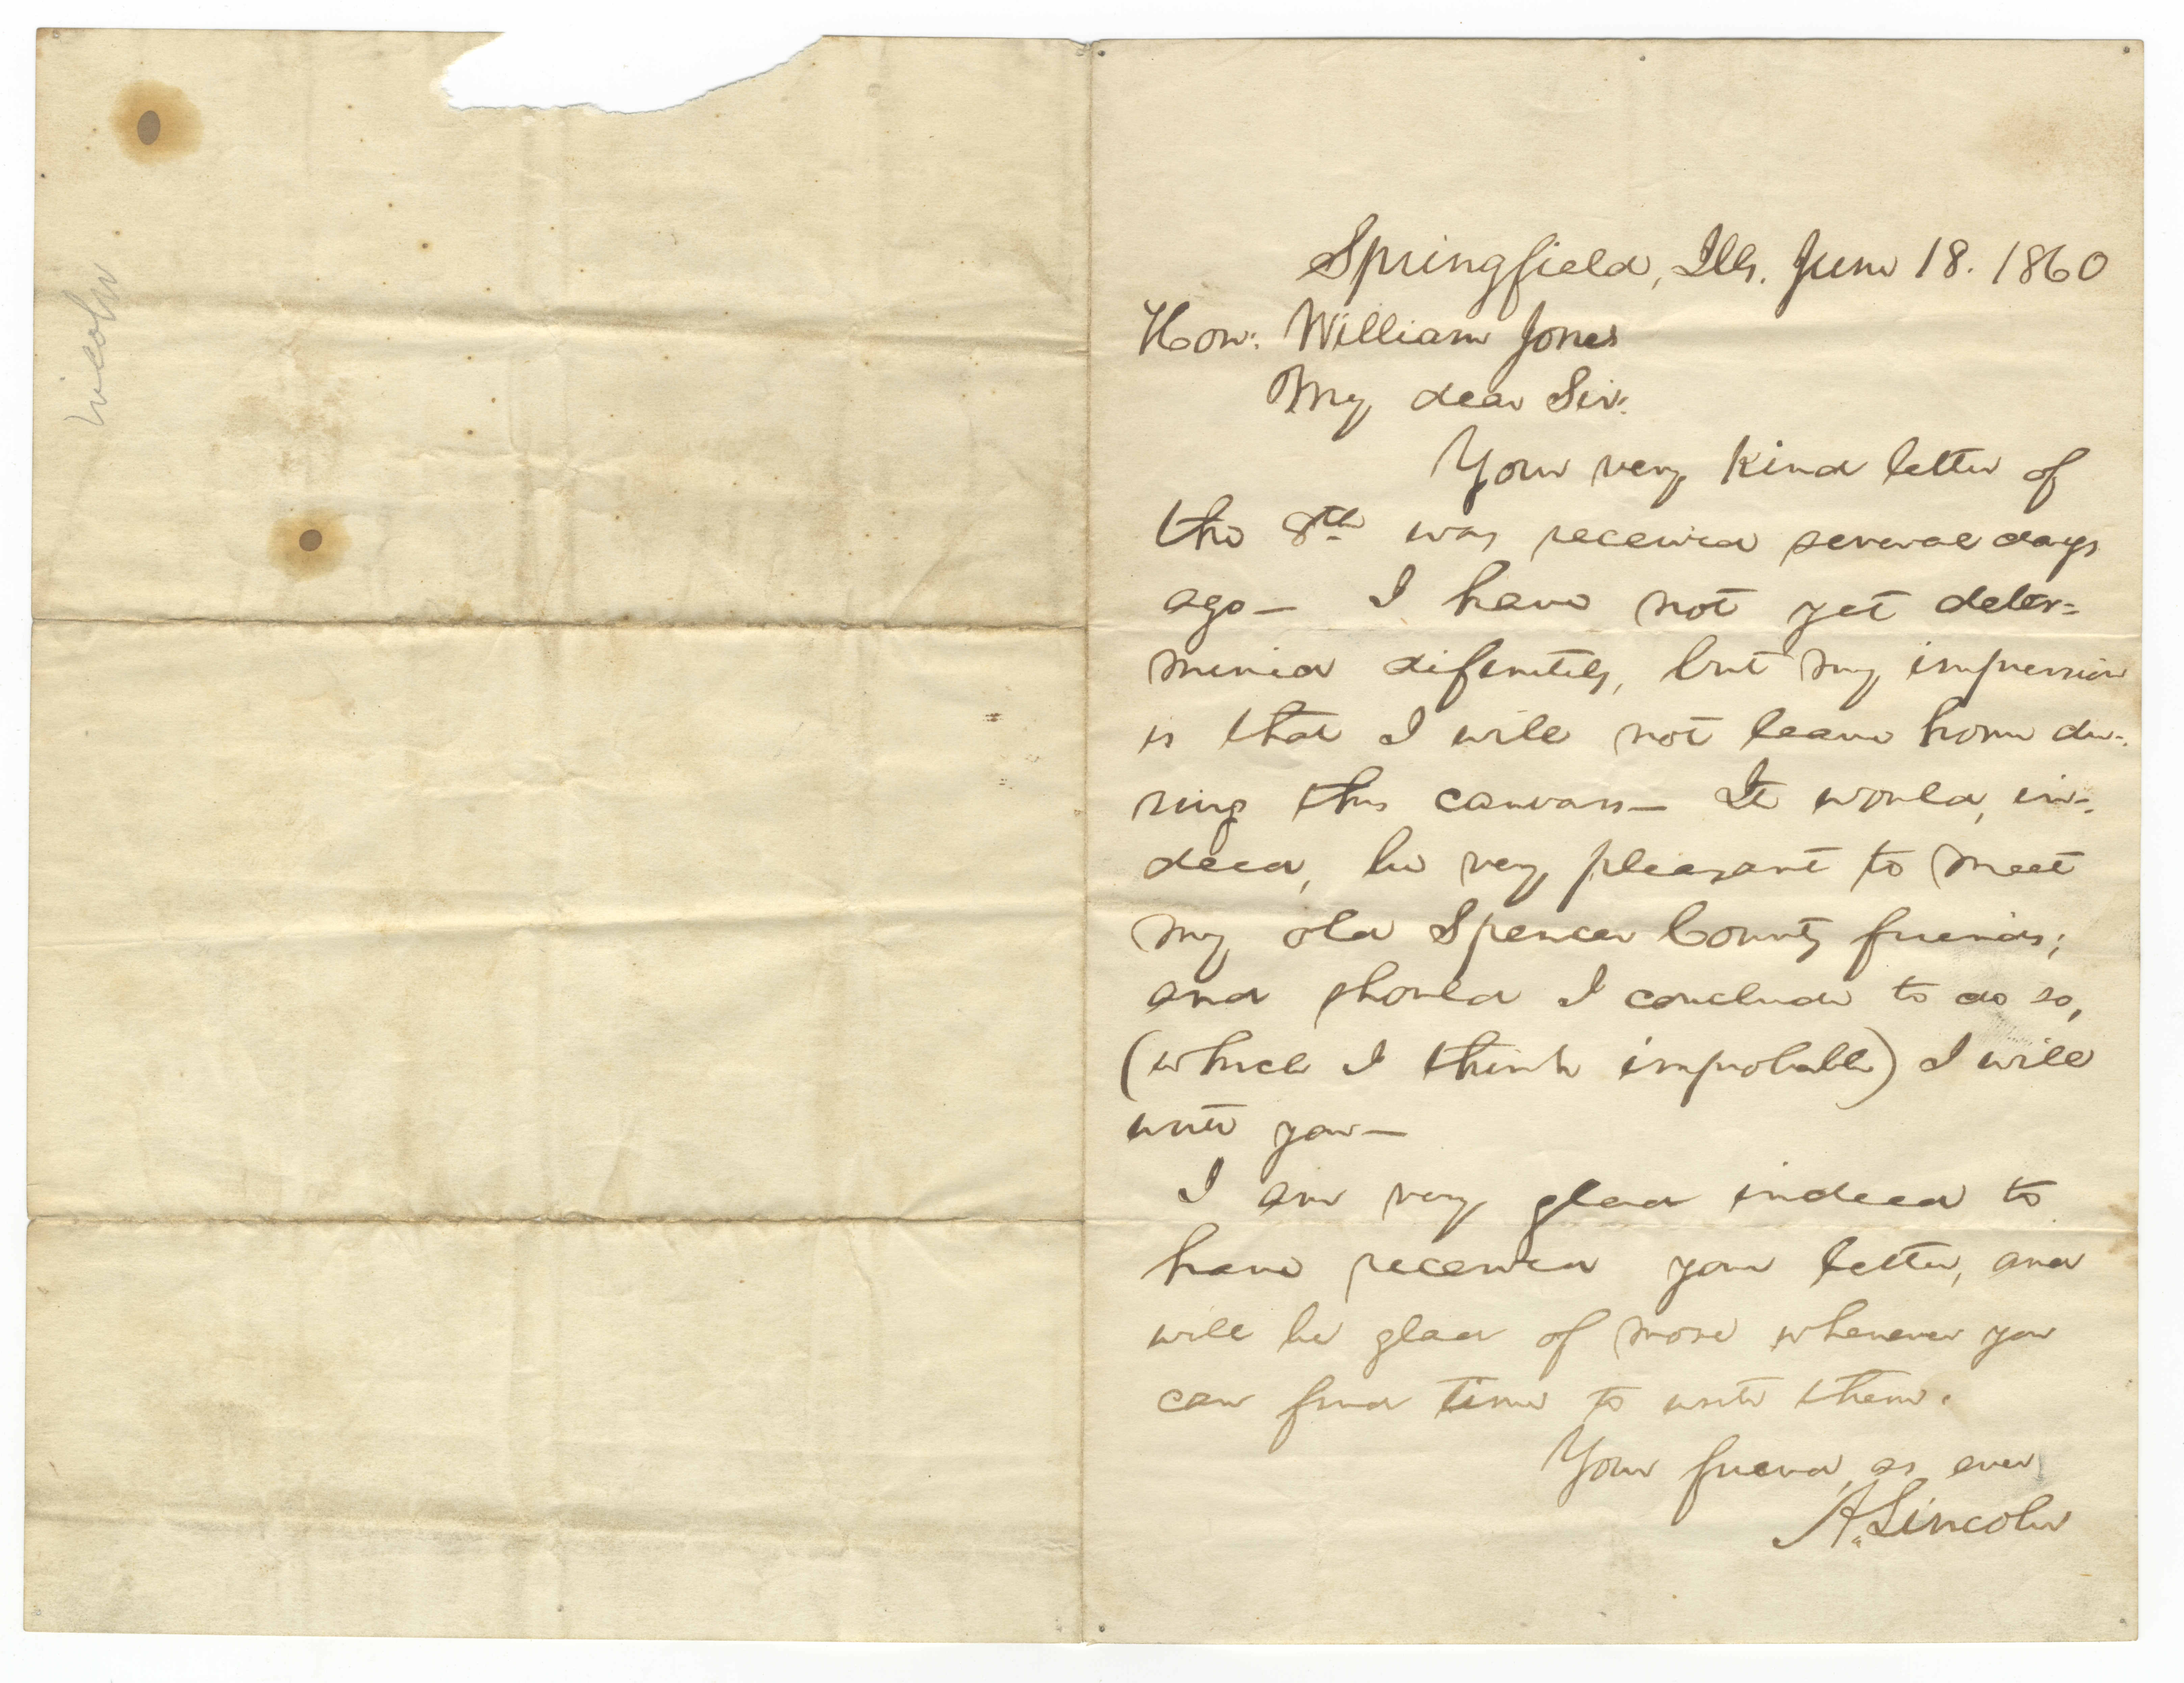 Lincoln
Springfield, Ills. June 18. 1860
Hon: William Jones
My dear Sir:
Your very kind letter of
the 8th was received several days
ago— I have not yet deter-
mined difinitely, but my impression
is that I will not leave home du-
ring this canvass— It would, in-
deed, be very pleasant to meet
my old Spencer County friends;
and should I conclude to do so,
(which I think improbable) I will
write you—
I am very glad indeed to
have received your letter, and
will be glad of more whenever you
can find time to write them.
Your friend, as ever
A. Lincoln